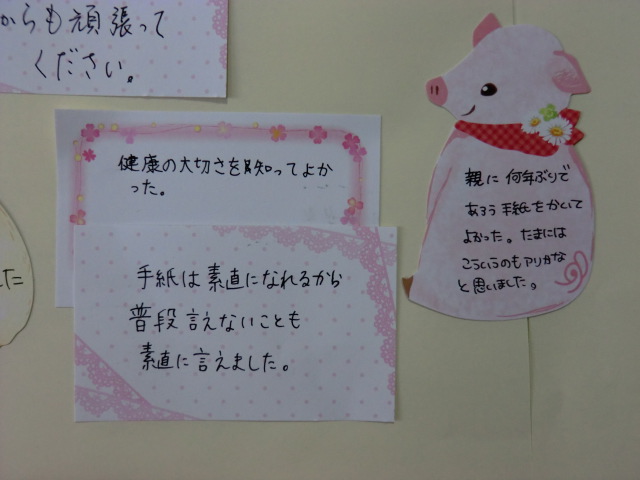 からも頑張って
ください。
健康の大切さを知ってよか
った。
手紙は素直になれるから
普段言えないことも
素直に言えました。
親に何年ぶりで
あろう手紙をかいて
よかった。たまには
こういうのもアリかな
と思いました。
した